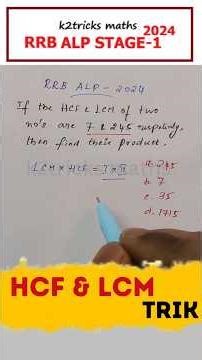 k2tricks maths
2024
RRB ALP STAGE-1
RRB ALP - 2024
If the HCF & LCM of two
no's are 7 & 245 respectively,
then find their product.
LCM × HCF = I × II
a. 245
b. 7
c. 35
d. 1715
HCF & LCM
TRIK